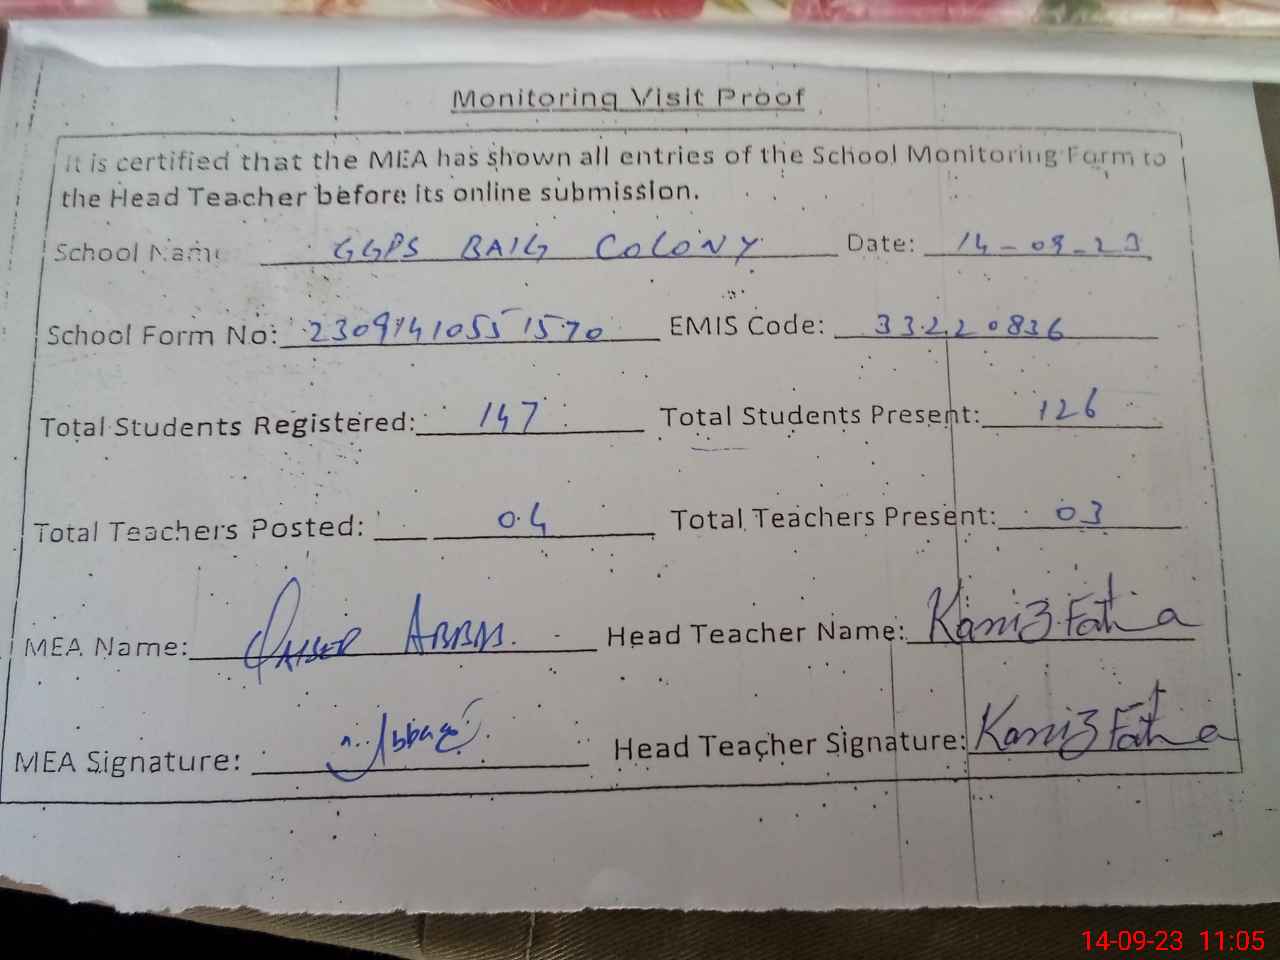 Monitoring Visit Proof
It is certified that the MEA has shown all entries of the School Monitoring Form to
the Head Teacher before its online submission.
School Name GGPS BAIG COLONY Date: 14-09-23
School Form No: 2309141055 1570 EMIS Code: 33220836
Total Students Registered: 147 Total Students Present: 126
Total Teachers Posted: 04 Total Teachers Present: 03
MEA Name: QAISER ABBAS. Head Teacher Name: Kaniz Fatima
MEA Signature: Abbas Head Teacher Signature: Kaniz Fatima
14-09-23 11:05